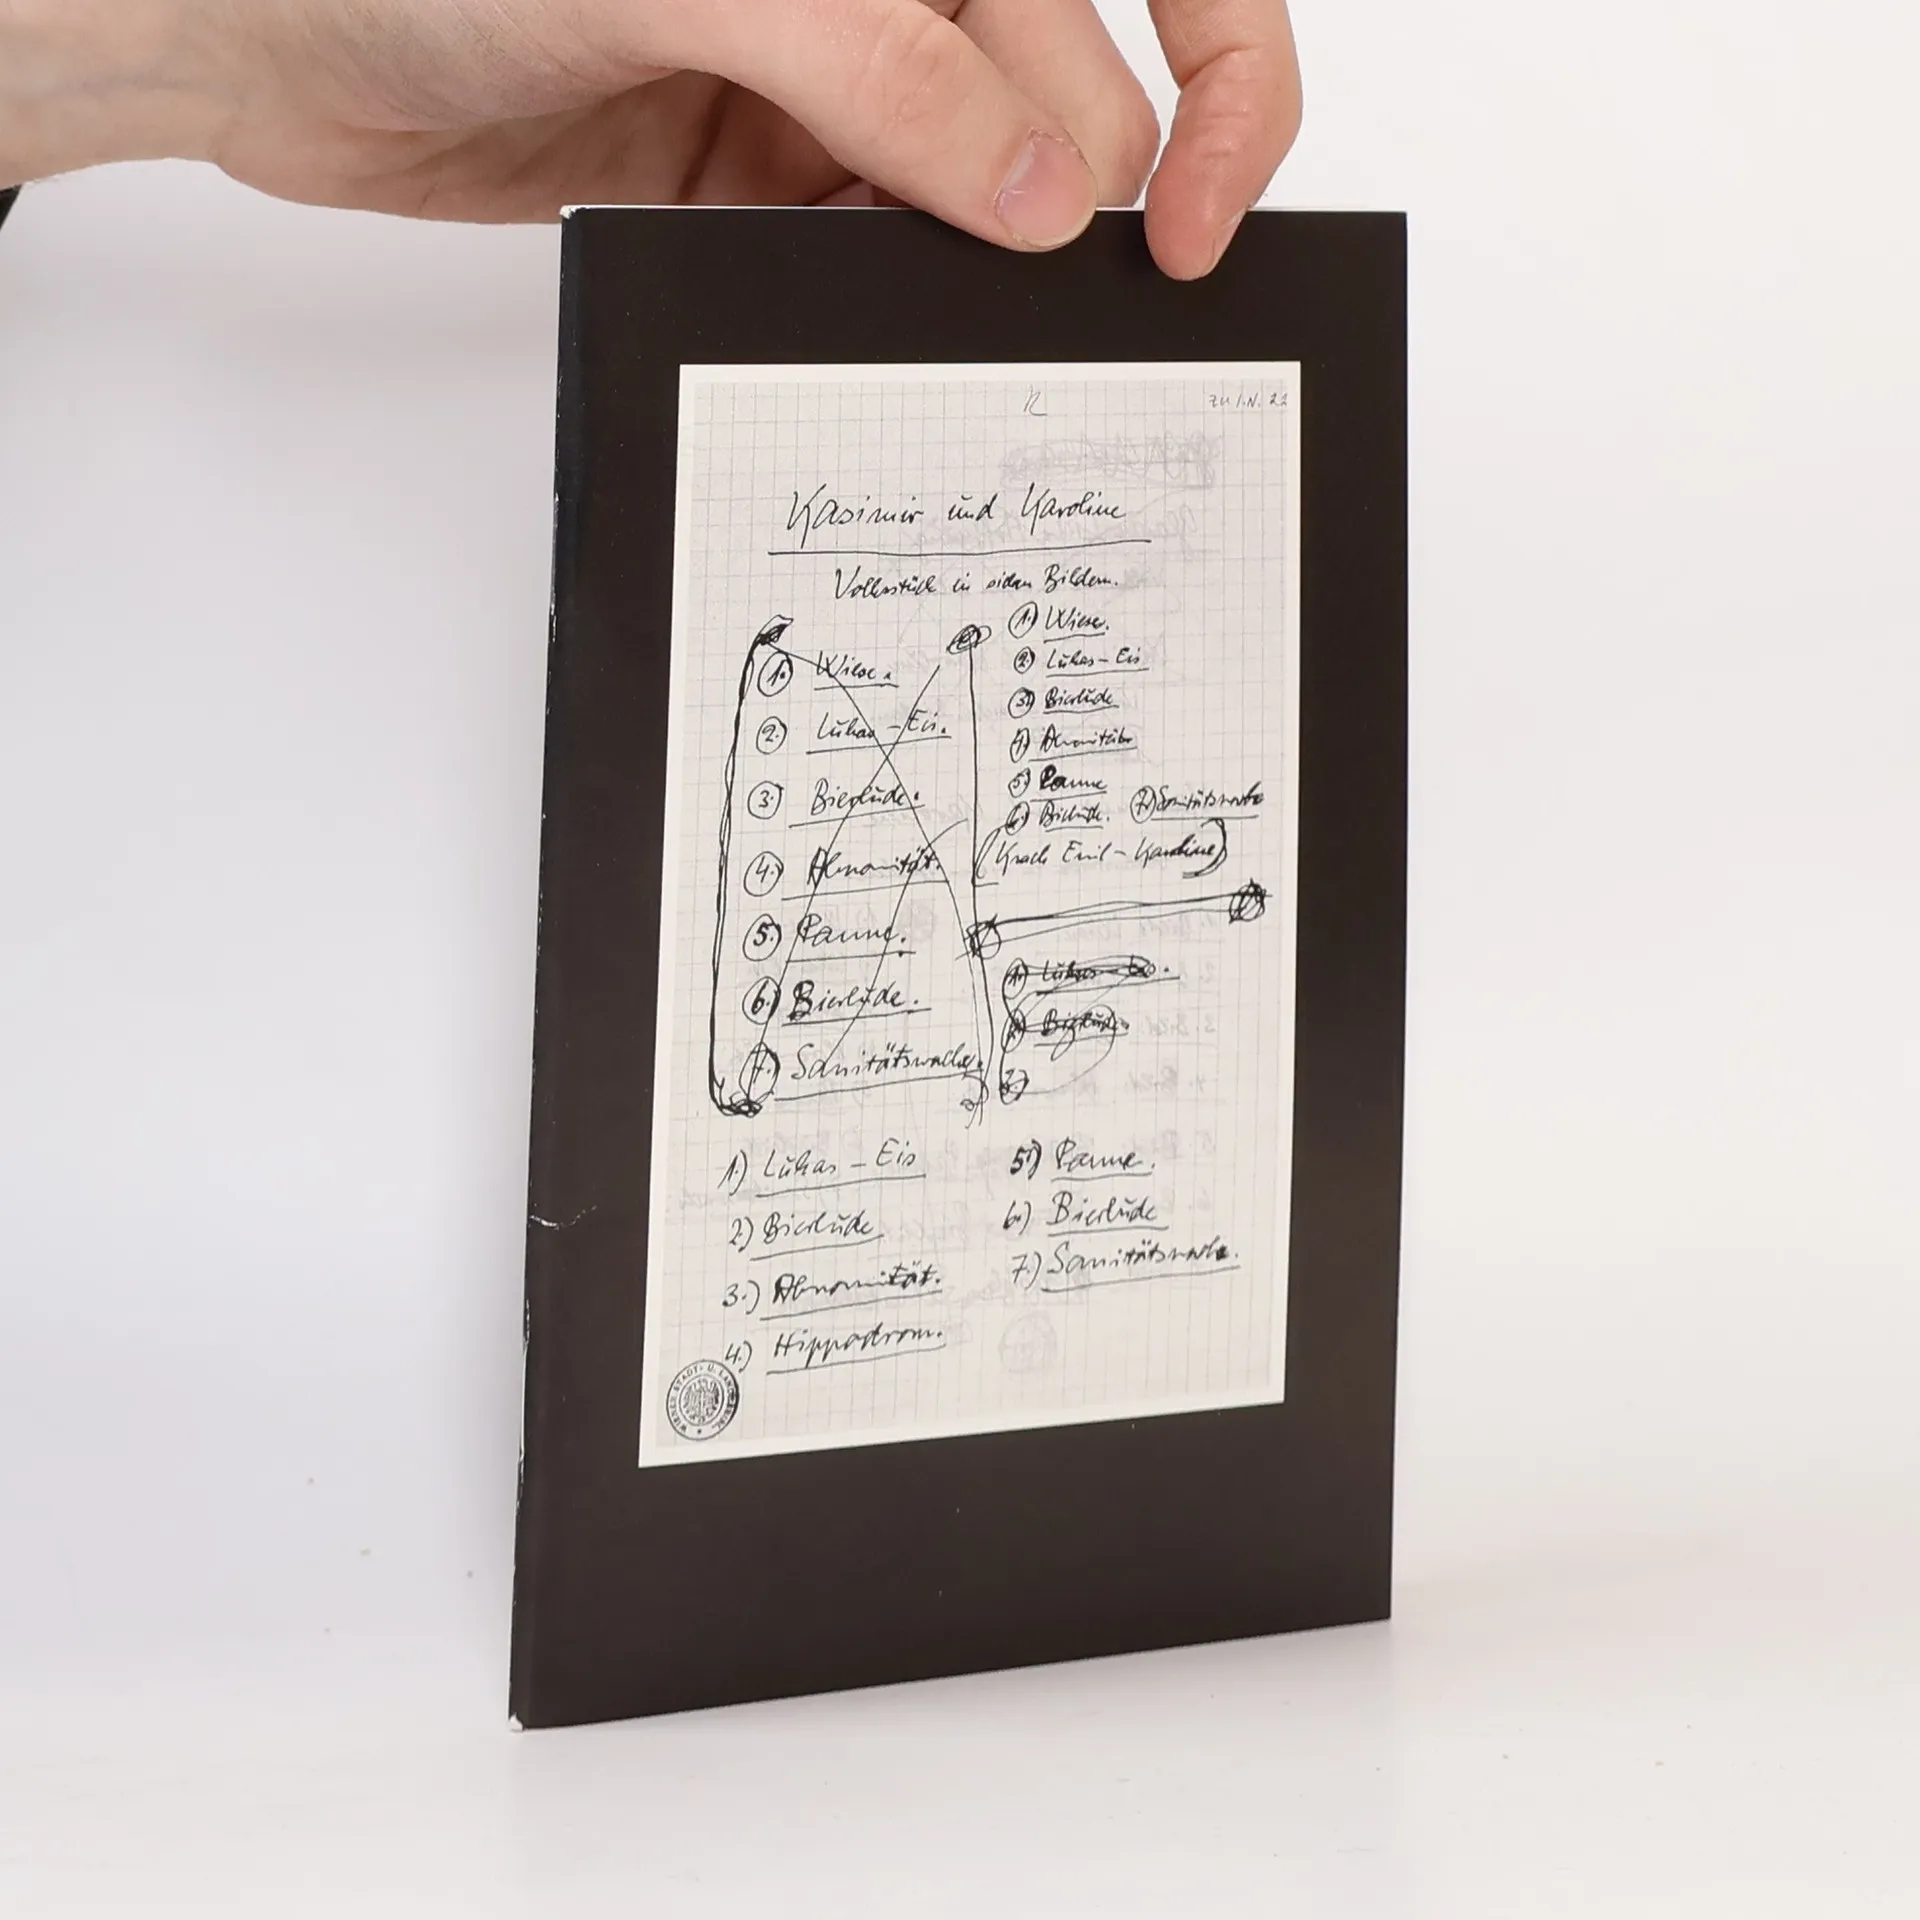 ZU I.N. 22
Kasimir und Karoline
Volksstück in sieben Bildern.
1.) Wiese.
2.) Lukas – Eis.
3.) Bierbude.
4.) Abnormität.
5.) Panne.
6.) Bierbude.
7.) Sanitätswache.
1.) Wiese.
2.) Lukas – Eis
3.) Bierbude
4.) Abnormitäten
5.) Panne
6.) Bierbude. 7.) Sanitätswache
(Krach Emil – Karoline)
1.) Lukas – Eis.
2.) Bierbude.
3.)
1.) Lukas – Eis
2.) Bierbude
3.) Abnormität.
4.) Hippodrom.
5.) Panne.
6.) Bierbude
7.) Sanitätswache.
WIENER STADT- U.